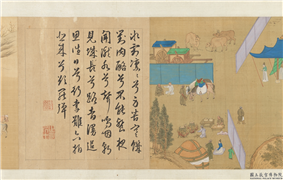 冰霜凜凜兮身苦寒饑
對肉酪兮不能餐夜
聞隴水兮聲嗚咽朝
見長城兮路杳漫追
思往日兮行李難六拍
悲來兮欲罷彈
國立故宮博物院